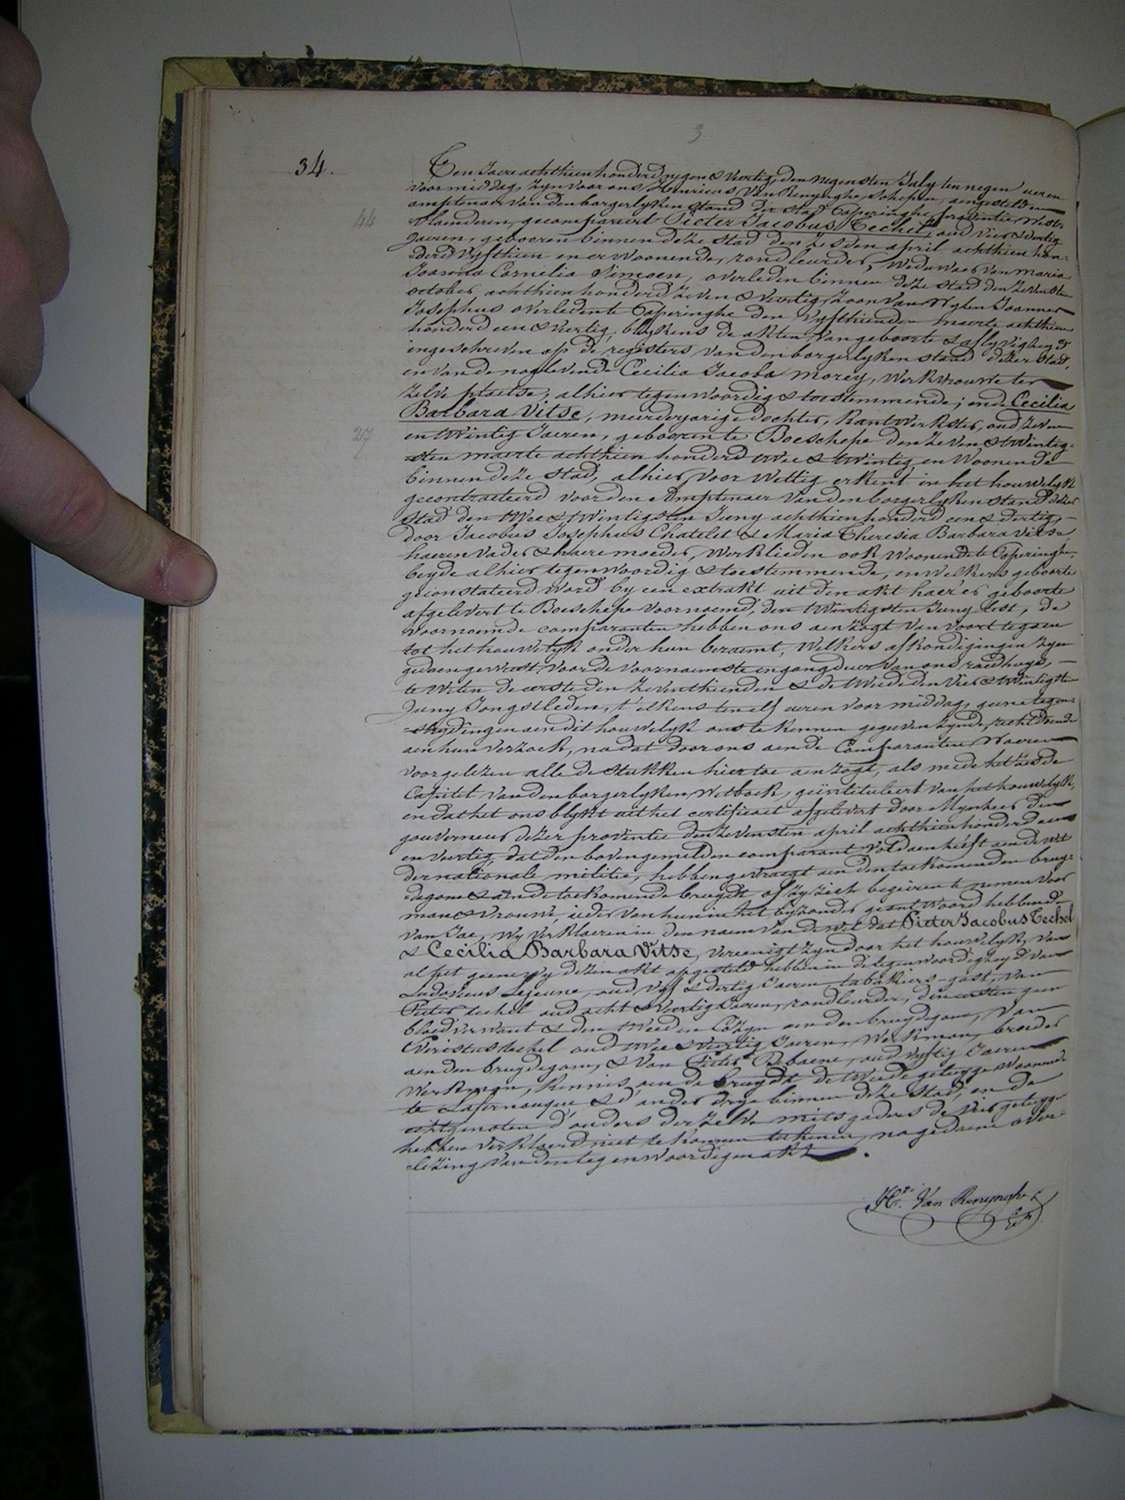 3
34.
Ten Jaere achthien honderd negen & Veertig, den negensten July ten negen ueren
voormiddag, zyn voor ons Henricus Van Renynghe, schepen, aengestelden
amptenaer van den borgerlyken stand der stad Poperinghe, provintie West-
44
Vlaenderen, gecompareert Pieter Jacobus Techel, oud Vier & Veertig
Jaeren, geboren binnen deze stad den zesden april achthien hon-
derd Vyfthien en er Woonende, rondleurder, Weduwaer van Maria
Joanna Cornelia Simoen, overleden binnen deze stad den zevensten
october achthien honderd zeven & Veertig, zoon van Wylen Joannes
Josephus overleden te Poperinghe den Vyfthienden maerte achthien
honderd een & Veertig, blykens de akten van geboorte & aflyvigheyd
ingeschreven op de registers van den borgerlyken stand dezer stad,
en van de nog levende Cecilia Jacoba Morey, Werkvrouwe ter
zelve plaetse, alhier tegenwoordig & toestemmende; ende Cecilia
Barbara Vitse, meerderjarige dochter, Kantwerkster, oud zeven
27
en twintig Jaeren, geboren te Boeschepe den zeven & twintig-
sten maerte achthien honderd twee & twintig en Woonende
binnen deze stad, alhier voor Wettig erkent in het houwelyk
gecontracteerd voor den Amptenaer van den borgerlyken stand dezer
stad den twee & twintigsten Juny achthien honderd een & dertig,
door Jacobus Josephus Chatelet & Maria Theresia Barbara Vitse
haeren vader & haere moeder, Werklieden ook Woonende te Poperinghe,
beyde alhier tegenwoordig & toestemmende, en welkers geboorte
geconstateerd word by een extrakt uit den akt haer'er geboorte
afgelevert te Boeschepe voornoemd, den twintigsten Juny lest, de
voornoemde comparanten hebben ons aenzogt van voort te gaen
tot het houwelyk onder hun beraemt, Welkers afkondigingen zyn
gedaen geweest voor de voornaemste ingangdeur van ons raedhuys,
te Weten de eerste den zeventhienden & de tweede den Vier & twintigsten
Juny Jongstleden, t'elkens ten elf ueren voormiddag, geene tegen-
strydingen aen dit houwelyk ons te kennen gegeven zynde, recht doende
aen hun verzoek, na dat door ons aen de Comparanten Waeren
voorgelezen alle de stukken hier toe aenzogt, als mede het zesde
Capitel van den borgerlyken Wetboek, geïntituleert van het houwelyk,
en dat het ons blykt uit het certificaet afgelevert door Mynheer den
gouverneur dezer provintie den zevensten april achthien honderd een
en veertig, dat den bovengemelden comparant voldaen heeft aen de Wet
der nationale militie, hebben gevraegt aen den toekomenden bruy-
degom & aen de toekomende bruydt of zy zich begeiren te nemen voor
man & vrouwe, ieder van hun in het byzonder geantwoord hebbende
van Jae, Wy Verklaeren in den naem van de Wet dat Pieter Jacobus Techel
& Cecilia Barbara Vitse, vereenigt zyn door het houwelyk, van
al het geene wy dezen akt opgesteld hebben in de tegenwoordigheyd van
Ludovicus Lejeune, oud vyf & dertig Jaeren, tabakiers-gast, van
Pieter Techel oud acht & Veertig Jaeren, rondleurder, den eersten geen
bloedverwant & den tweeden Cozyn aen den bruydegom, Van
Techel oud twee & Veertig Jaeren, Werkman, broeder
aen den bruydegom, & Van Pieter Behaene, oud vyftig Jaeren
Werkman, Kennis aen de bruydt de tweede getuyge Woonende
te & d'ander drye binnen deze stad, en de
echtgenoten d'ouders der zelve mitsgaders de vier getuygen
hebben verklaerd niet te konnen teekenen, na gedaene over-
lezing van den tegenwoordigen akt.
Hri. Van Renynghe